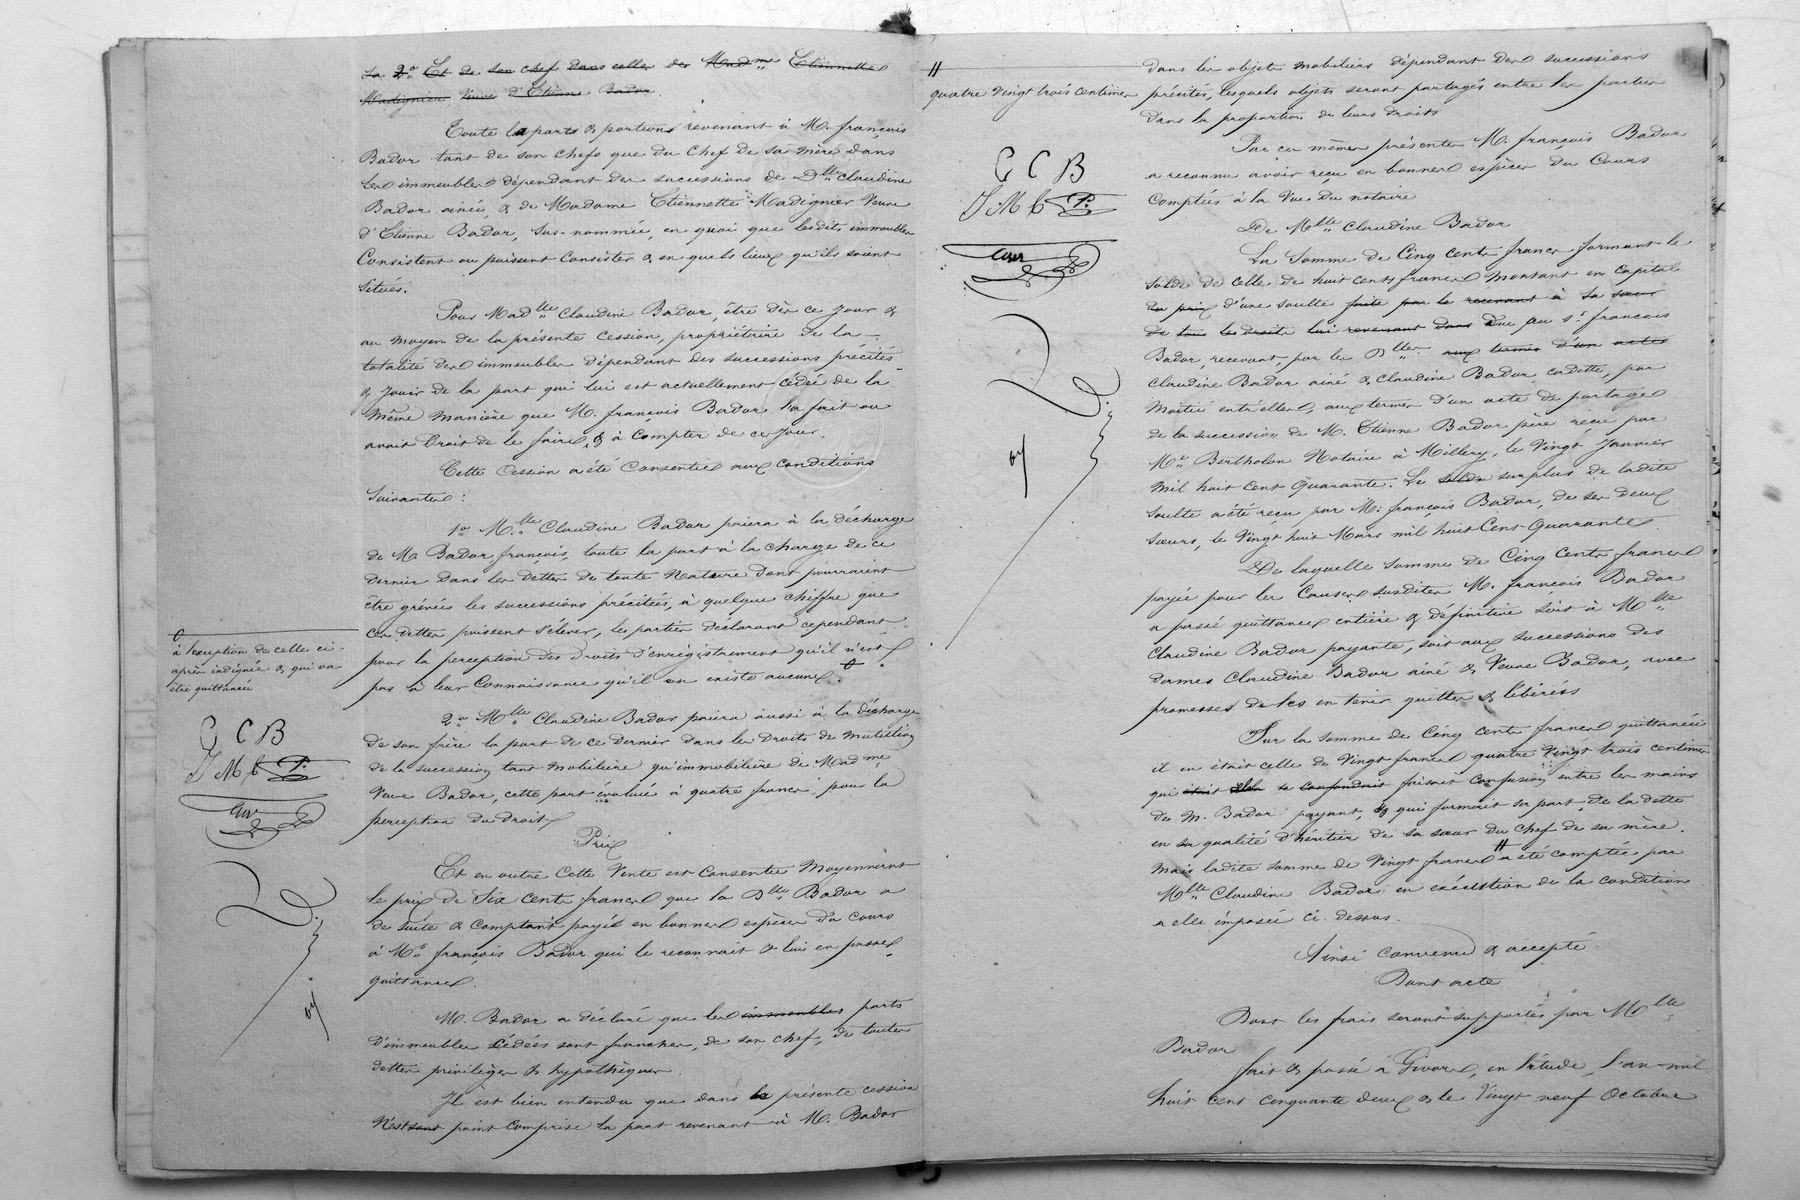 la 2.o Et de son chef dans celles de Mad.me Etiennette
Madignier Veuve d'Etienne Bador.
Toute la parts & portions revenant à M. françois
Bador tant de son chefs que du chef de sa mère dans
les immeubles dépendant des successions de D.lle Claudine
Bador ainée, & de Madame Etiennette Madignier Veuve
d'Etienne Bador, sus-nommée, en quoi que lesdits immeubles
Consistent ou puissent consister & en quels lieux qu'ils soient
situés.
Pour Mad.lle Claudine Bador, être dès ce jour &
au moyen de la présente cession, propriétaire de la
totalité des immeubles dépendant des successions précités
& jouir de la part qui lui est actuellement cédée de la
même manière que M. françois Bador l'a fait ou
avait Droit de le faire, & à compter de ce jour.
Cette Cession a été Consentie aux conditions
suivantes :
1.o M.lle Claudine Bador paiera à la décharge
de M. Bador françois, toute la part à la charge de ce
dernier dans les dettes de toute Nature dont pourraient
être grévées les successions précitées, à quelque chiffre que
ces dettes puissent s'élever, les parties déclarant cependant
pour la perception des Droits d'enrégistrement qu'il n'est
pas à leur Connaissance qu'il en existe aucune.
à l'exception de celles ci-
après indiquée & qui va
être quittancée
G C B
J M B P.
2.o M.lle Claudine Bador paiera aussi à la décharge
de son frère la part de ce dernier dans les Droits de Mutation
de la succession tant mobilière qu'immobilière de Mad.me
Veuve Bador, cette part évaluée à quatre francs, pour la
perception du droit
Prix
Et en outre Cette Vente est Consentie Moyennant
le prix de Six cents francs que la D.lle Bador a
de suite & comptant payé en bonnes espèces du cours
à M.r françois Bador qui le reconnait & lui en passe
quittance.
M. Bador a déclaré que les immeubles parts
d'immeubles cédées sont franches, de son chef, de toutes
dettes privilèges & hypothèques.
Il est bien entendu que dans la présente cession
N'est sont point comprise la part revenant à M. Bador
dans les objets mobiliers dépendant des successions
précités, lesquels objets seront partagés entre les parties
dans la proportion de leurs droits
quatre vingt trois centimes
G C B
J M B P.
Par ces mêmes présentes M. françois Bador
a reconnu avoir reçu en bonnes espèces du Cours
Comptées à la Vue du notaire
De M.lle Claudine Bador
La Somme de Cinq cents francs formant le
solde de celle de huit cents francs montant en capital
du prix d'une soulte faite par le recevant à sa sœur
de tous les droits lui revenant dans due au s.r françois
Bador, recevant, par les D.lles aux termes d'un actes
Claudine Bador ainé & Claudine Bador cadette, par
Moitié entr'elles, aux termes d'un acte de partage
de la succession de M. Etienne Bador père reçu par
M.e Bertholon Notaire à Millery, le Vingt Janvier
mil huit cent Quarante. Le solde surplus de ladite
soulte a été reçu par M. françois Bador, de ses deux
sœurs, le Vingt huit Mars mil huit Cent Quarante.
De laquelle somme de Cinq Cents francs
payée pour les Causes susdites M. françois Bador
a passé quittances entière & définitive soit à M.lle
Claudine Bador payante, soit aux successions des
dames Claudine Bador ainé & Veuve Bador, avec
promesses de les en tenir quittes & libérées
Sur la somme de Cinq cents francs quittancée
il en était celle de Vingt francs quatre Vingt trois centimes
qui était se confondait faisait confusion entre les mains
de M. Bador payant, & qui formait sa part de la dette
en sa qualité d'héritier de sa sœur du chef de sa mère.
Mais ladite somme de Vingt francs a été comptée par
M.lle Claudine Bador en exécution de la condition
a elle imposée ci-dessus.
Ainsi convenu & accepté
Dont acte
Dont les frais seront supportés par M.lle
Bador
fait & passé à Givors, en l'étude, l'an mil
huit cent cinquante deux & le Vingt neuf Octobre